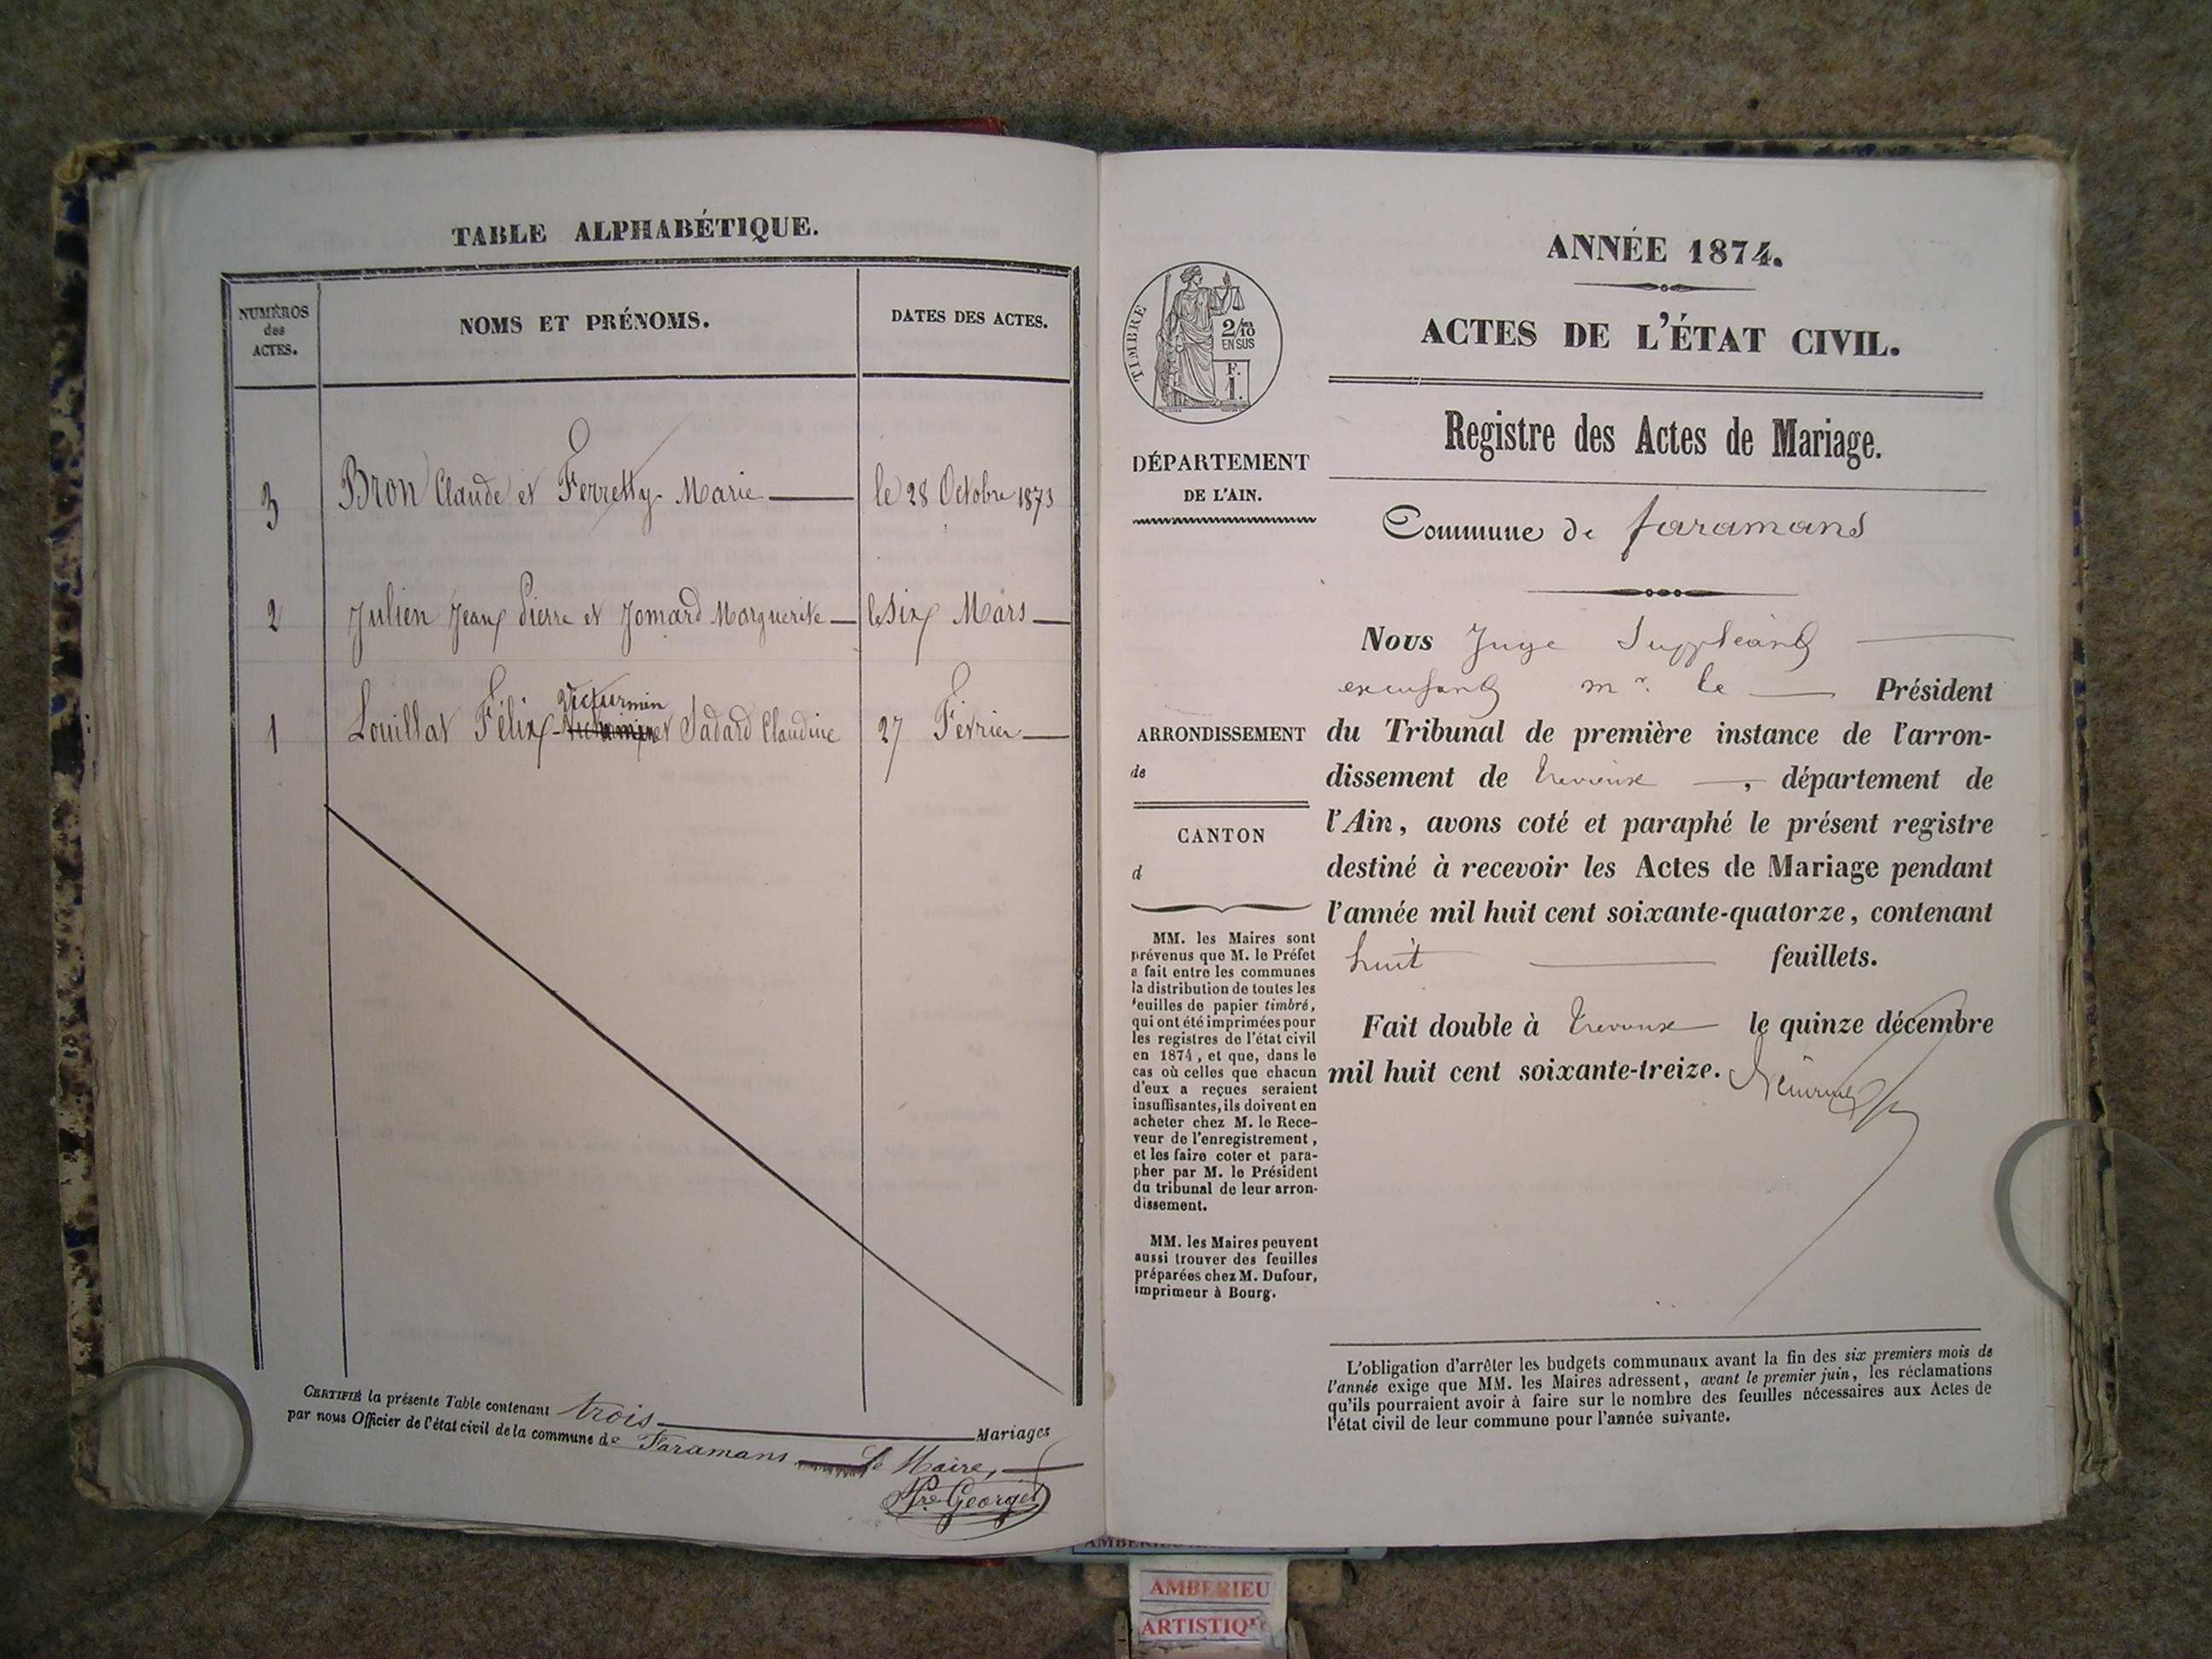 TABLE ALPHABÉTIQUE.
NUMÉROS
des
ACTES.
NOMS ET PRÉNOMS.
DATES DES ACTES.
3 Bron Claude et Ferretty Marie le 28 Octobre 1873
2 Julien Jean Pierre et Jomard Marguerite le Six Mars
Victurmin
1 Louillat Félix et Sadard Claudine 27 Février
CERTIFIÉ la présente Table contenant trois Mariages
par nous Officier de l'état civil de la commune de Faramans Le Maire,
Pre Georget
ANNÉE 1874.
ACTES DE L'ÉTAT CIVIL.
Registre des Actes de Mariage.
Commune de faramans
TIMBRE
2/10
EN SUS
F.
1.
DÉPARTEMENT
DE L'AIN.
ARRONDISSEMENT
de
CANTON
d
MM. les Maires sont
prévenus que M. le Préfet
a fait entre les communes
la distribution de toutes les
feuilles de papier timbré,
qui ont été imprimées pour
les registres de l'état civil
en 1874, et que, dans le
cas où celles que chacun
d'eux a reçues seraient
insuffisantes, ils doivent en
acheter chez M. le Rece-
veur de l'enregistrement,
et les faire coter et para-
pher par M. le Président
du tribunal de leur arron-
dissement.
MM. les Maires peuvent
aussi trouver des feuilles
préparées chez M. Dufour,
imprimeur à Bourg.
Nous Juge Suppléant
excusant mr. le Président
du Tribunal de première instance de l'arron-
dissement de trevoux, département de
l'Ain, avons coté et paraphé le présent registre
destiné à recevoir les Actes de Mariage pendant
l'année mil huit cent soixante-quatorze, contenant
huit feuillets.
Fait double à trevoux le quinze décembre
mil huit cent soixante-treize.
L'obligation d'arrêter les budgets communaux avant la fin des six premiers mois de
l'année exige que MM. les Maires adressent, avant le premier juin, les réclamations
qu'ils pourraient avoir à faire sur le nombre des feuilles nécessaires aux Actes de
l'état civil de leur commune pour l'année suivante.
AMBERIEU
ARTISTIQU